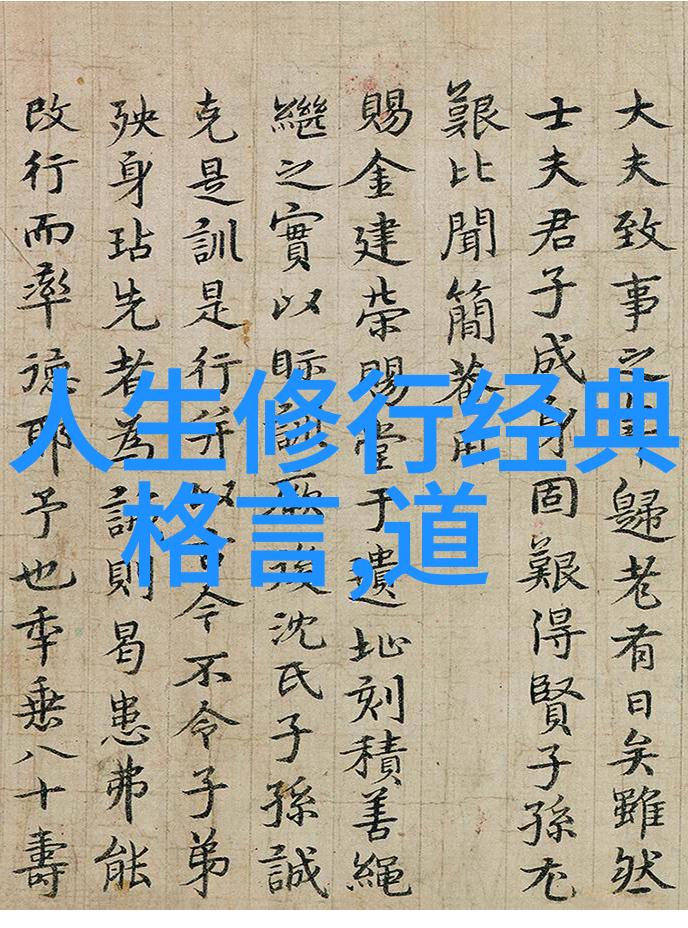 大夫致事之歸老有日矣雖然
士夫君子成身固艱得賢子孫尤
艱比聞簡菴用
賜金建榮賜堂于遺址刻積善繩
繼之實以眎訓厥後沈氏子孫誠
克是訓是行并以令不令子弟
殃身玷先者為誡則曷患弗能
改行而率德耶予也年垂八十壽
人生修行经典
格言,道